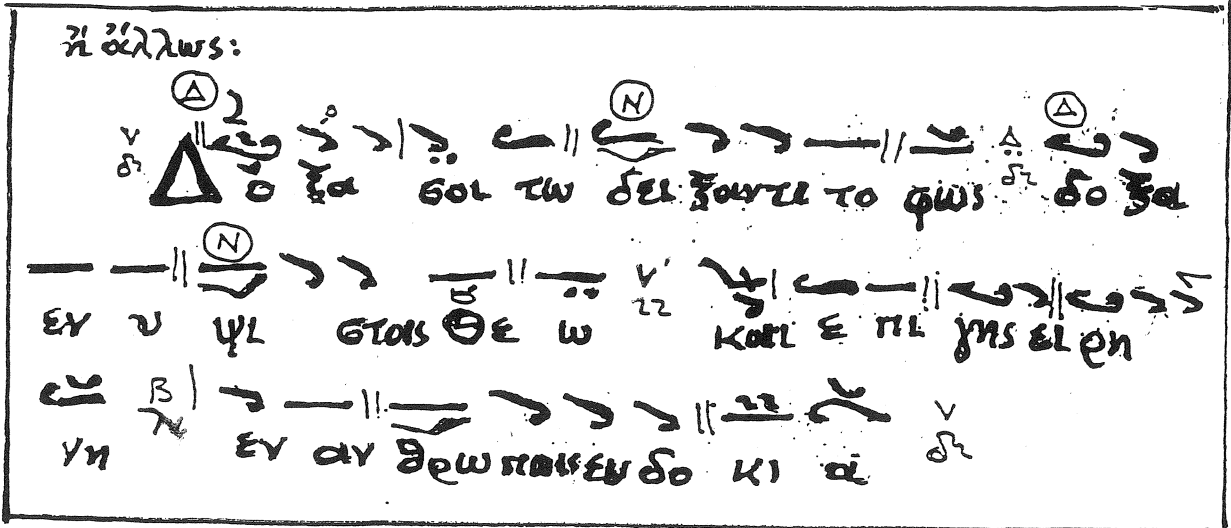 ἢ ἄλλως:
Δ ο ξα σοι τω δει ξαντι το φως δο ξα
εν υ ψι στοις Θε ω και ε πι γης ει ρη
νη εν αν θρω ποις εν δο κι α